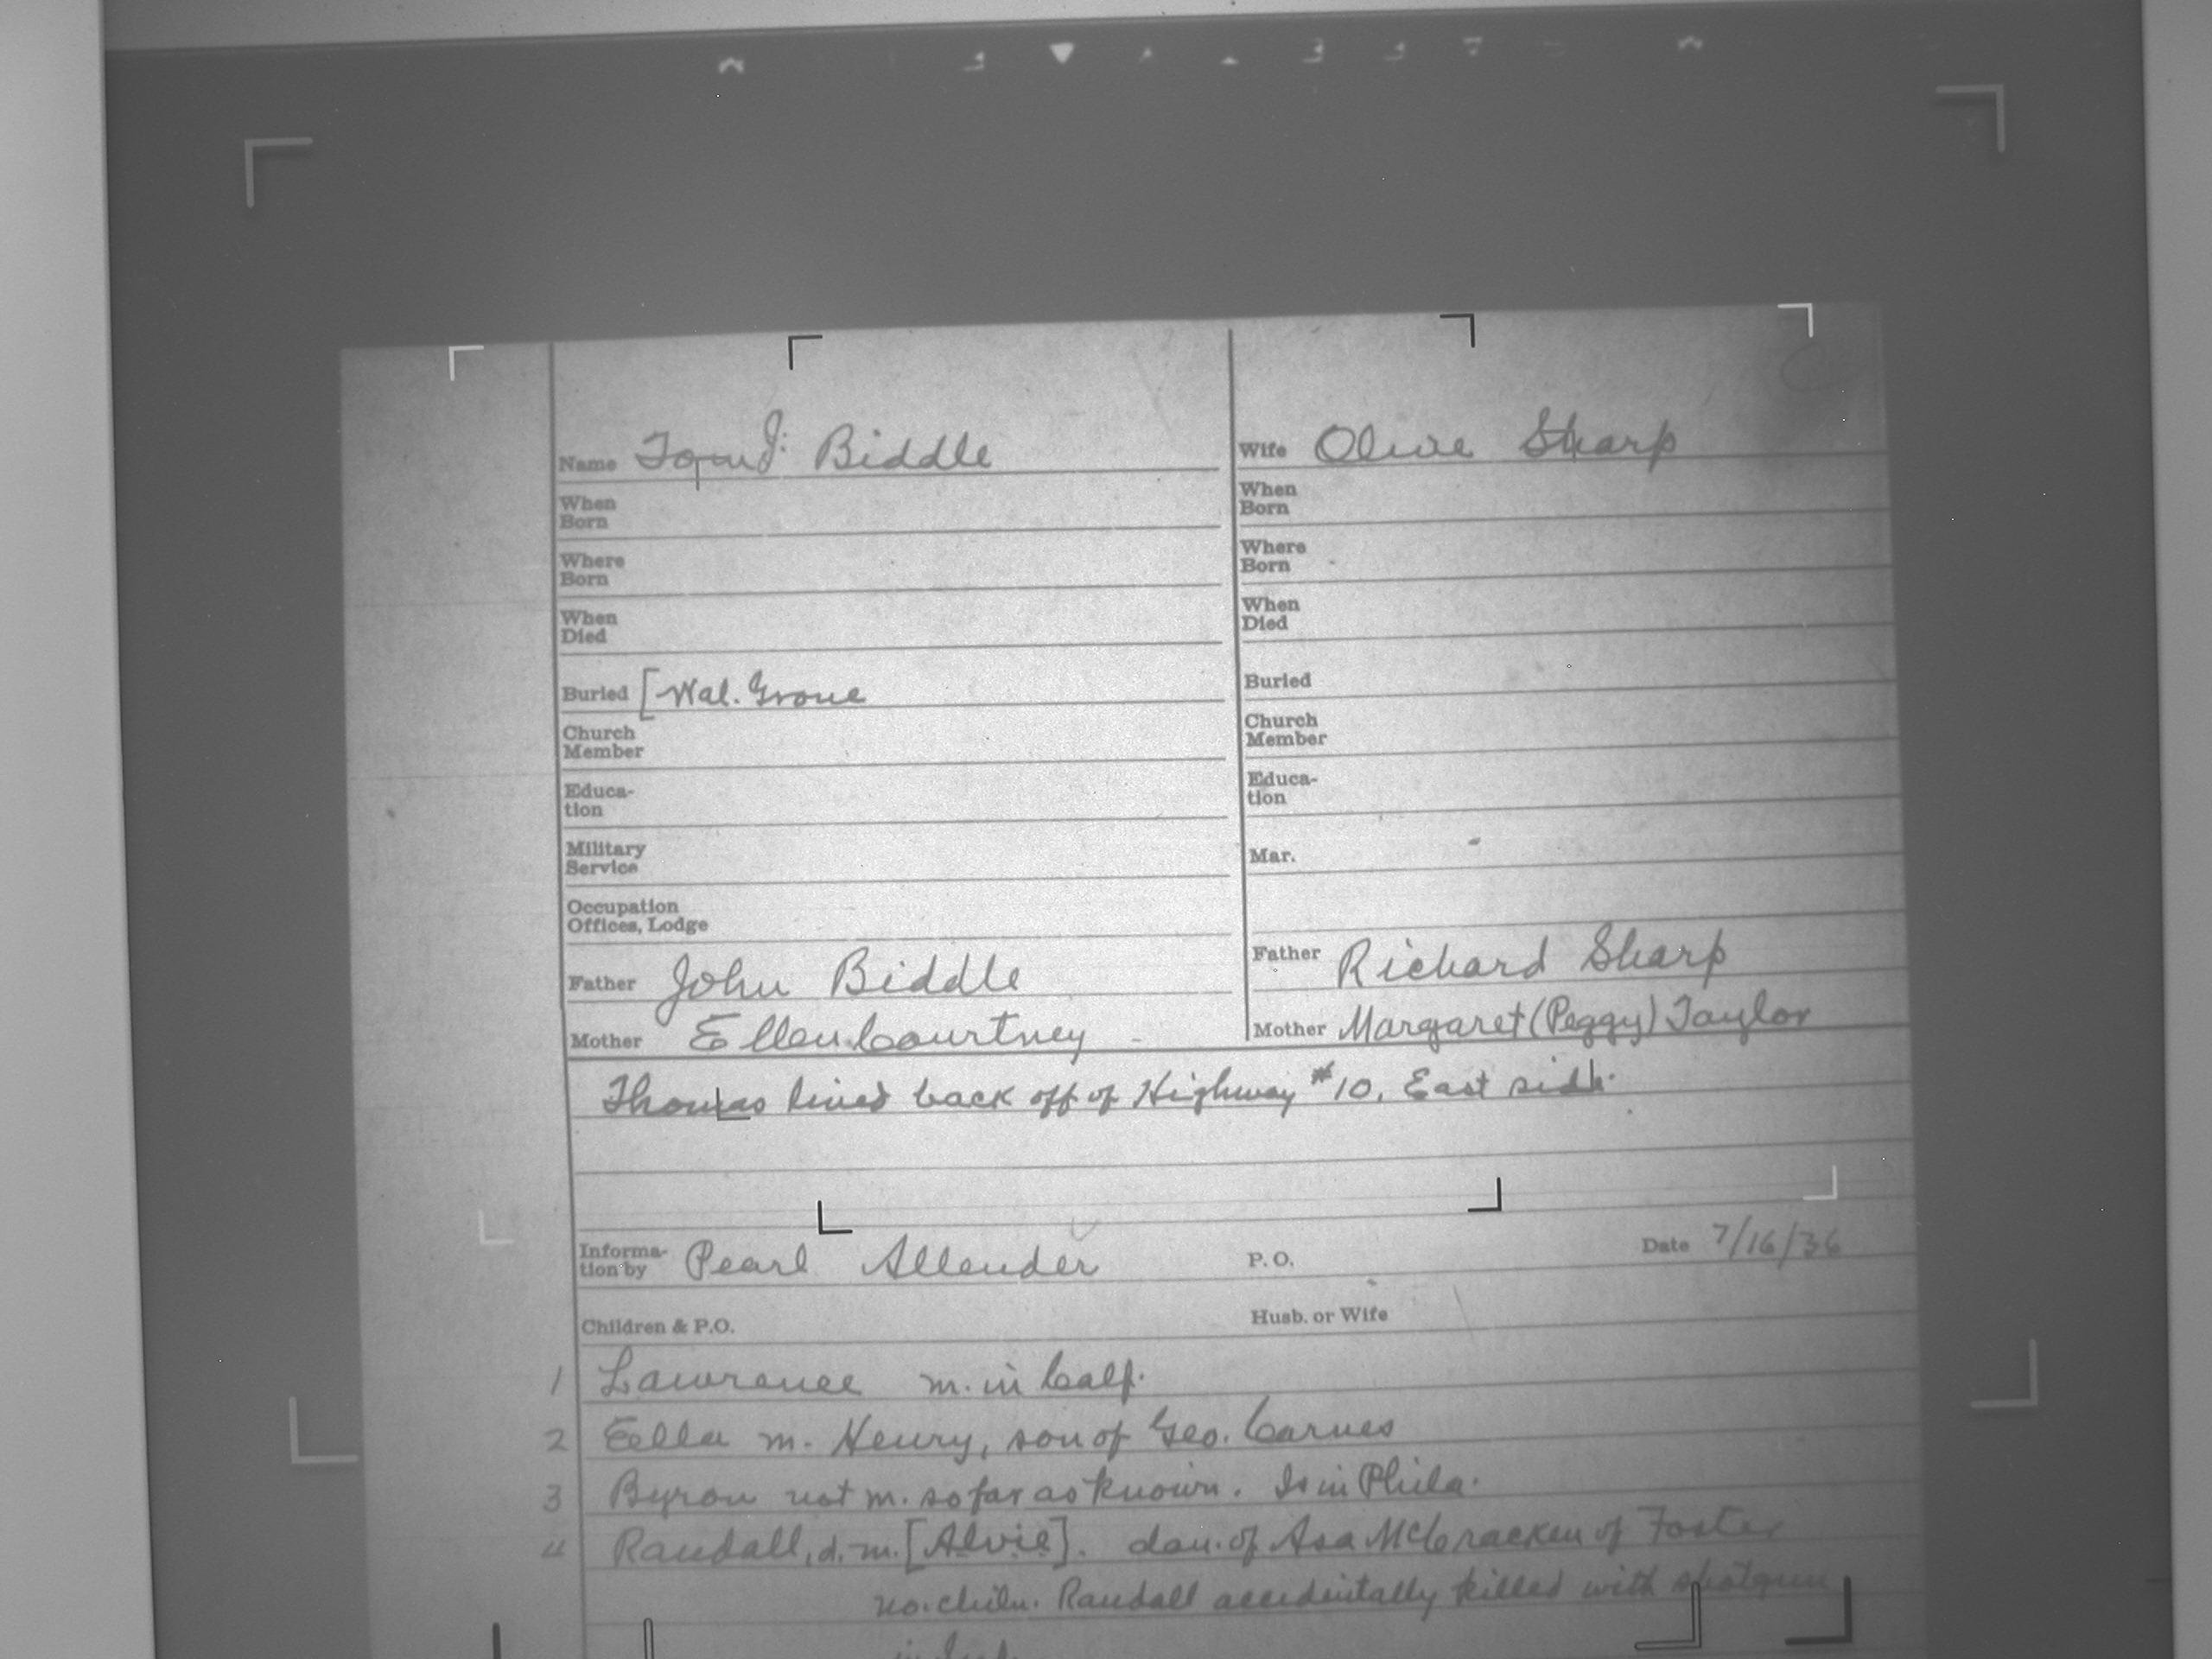 Name Tom J. Biddle
Wife Olive Sharp
When Born
When Born
Where Born
Where Born
When Died
When Died
Buried [Wal. Grove
Buried
Church Member
Church Member
Educa-tion
Educa-tion
Military Service
Mar.
Occupation Offices, Lodge
Father John Biddle
Father Richard Sharp
Mother Ellen Courtney
Mother Margaret (Peggy) Taylor
Thomas lived back off of Highway #10, East side.
Informa-tion by Pearl Allender P.O. Date 7/16/36
Children & P.O. Husb. or Wife
1 Lawrence m. in Calf.
2 Eella m. Henry, son of Geo. Carnes
3 Byron not m. so far as known. Is in Phila.
4 Randall, d. m. [Alvie]. dau. of Asa McCracken of Foster
no. chiln. Randall accidentally killed with shotgun
in